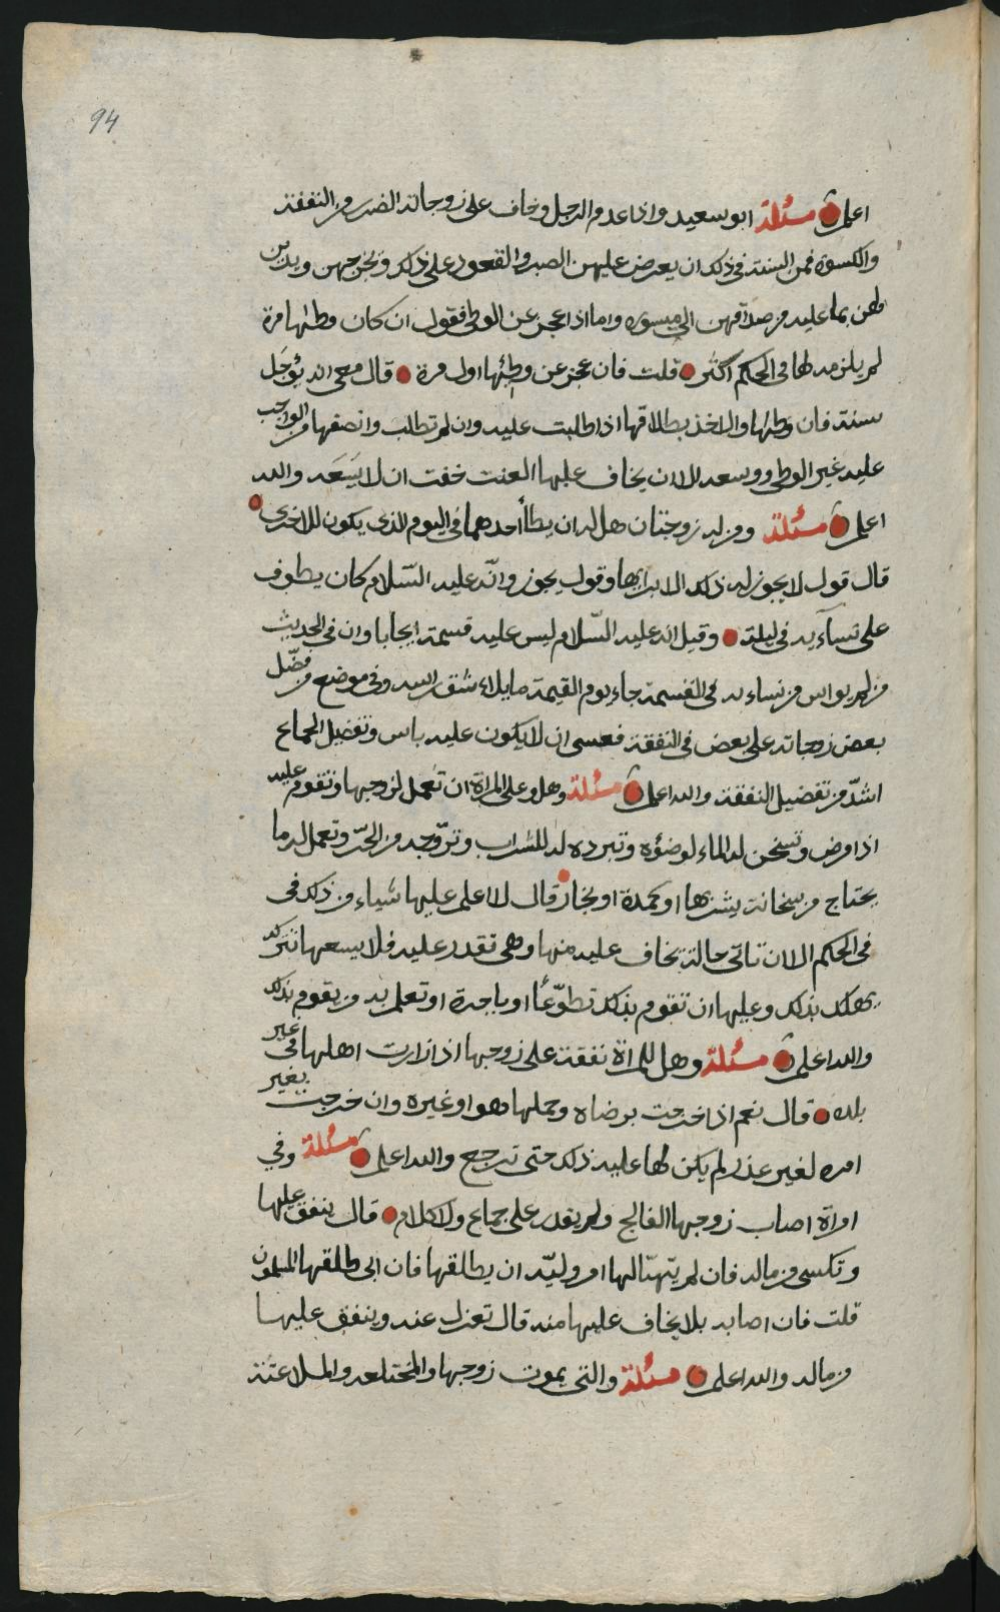 94
اعلم مسئلة ابو سعيد واذا عدم الرجل وخاف على زوجاته الضرر من النفقة
والكسوة فمن السنة في ذلك ان يعرض عليهن الصبر والقعود على ذلك وتخرجهن ويدين
لهن بما عليه من صداقهن الى ميسوره واما اذا عجز عن الوطي فقول ان كان وطئها مرة
لم يلزمه لها في الحكم اكثر قلت فان عجز عن وطئها اول مرة قال معي انه يؤجل
سنة فان وطئها والا اخذ بطلاقها اذا طلبت عليه وان لم تطلب وانصفها من الواجب
عليه غير الوطي ووسعه الا ان يخاف عليها العنت خفت ان لا يسعه والله
اعلم مسئلة ومن له زوجتان هل له ان يطأ احدهما في اليوم الذي يكون للاخرى
قال قول لا يجوز له ذلك الا برايها وقول يجوز وانّه عليه السّلام كان يطوف
على نسآءيه في ليلة وقيل انه عليه السّلام ليس عليه قسمة ايجابا وان في الحديث
من لم يواس من نساءه في القسمة جاء يوم القيمة مايلا شق راسه وفي موضع من فضّل
بعض زوجاته على بعض في النفقة فعسى ان لا يكون عليه باس وتفضيل الجماع
اشدّ من تفضيل النفقة والله اعلم مسئلة وهل على المراة ان تعمل لزوجها وتقوم عليه
اذا مرض وتسخن له الماء لوضؤه وتبرده له للشراب وتروّجه من الحرّ وتعمل له ما
يحتاج من سخانة يشربها او كمدة او بخار قال لا اعلم عليها شياء من ذلك في
في الحكم الا ان تاتي حالة يخاف عليه منها وهي تقدر عليه فلا يسعها تتركه
يهلك بذلك وعليها ان تقوم بذلك تطوّعًا او باجرة او تعلم به من يقوم بذلك
والله اعلم مسئلة وهل للمراة نفقة على زوجها اذا زارت اهلها في غير
بلده قال نعم اذا خرجت برضاه وحملها هو او غيره وان خرجت بغير
امره لغير عذر لم يكن لها عليه ذلك حتى ترجع والله اعلم مسئلة وفي
امراة اصاب زوجها الفالج ولم يقدر على جماع ولا كلام قال ينفق عليها
وتكسى من ماله فان لم يتهيّا لها امر وليّه ان يطلقها فان ابى طلقها المسلمون
قلت فان اصابه بلا يخاف عليها منه قال تعزل عنه وينفق عليها
من ماله والله اعلم مسئلة والتي يموت زوجها والمختلعه والملاعنة